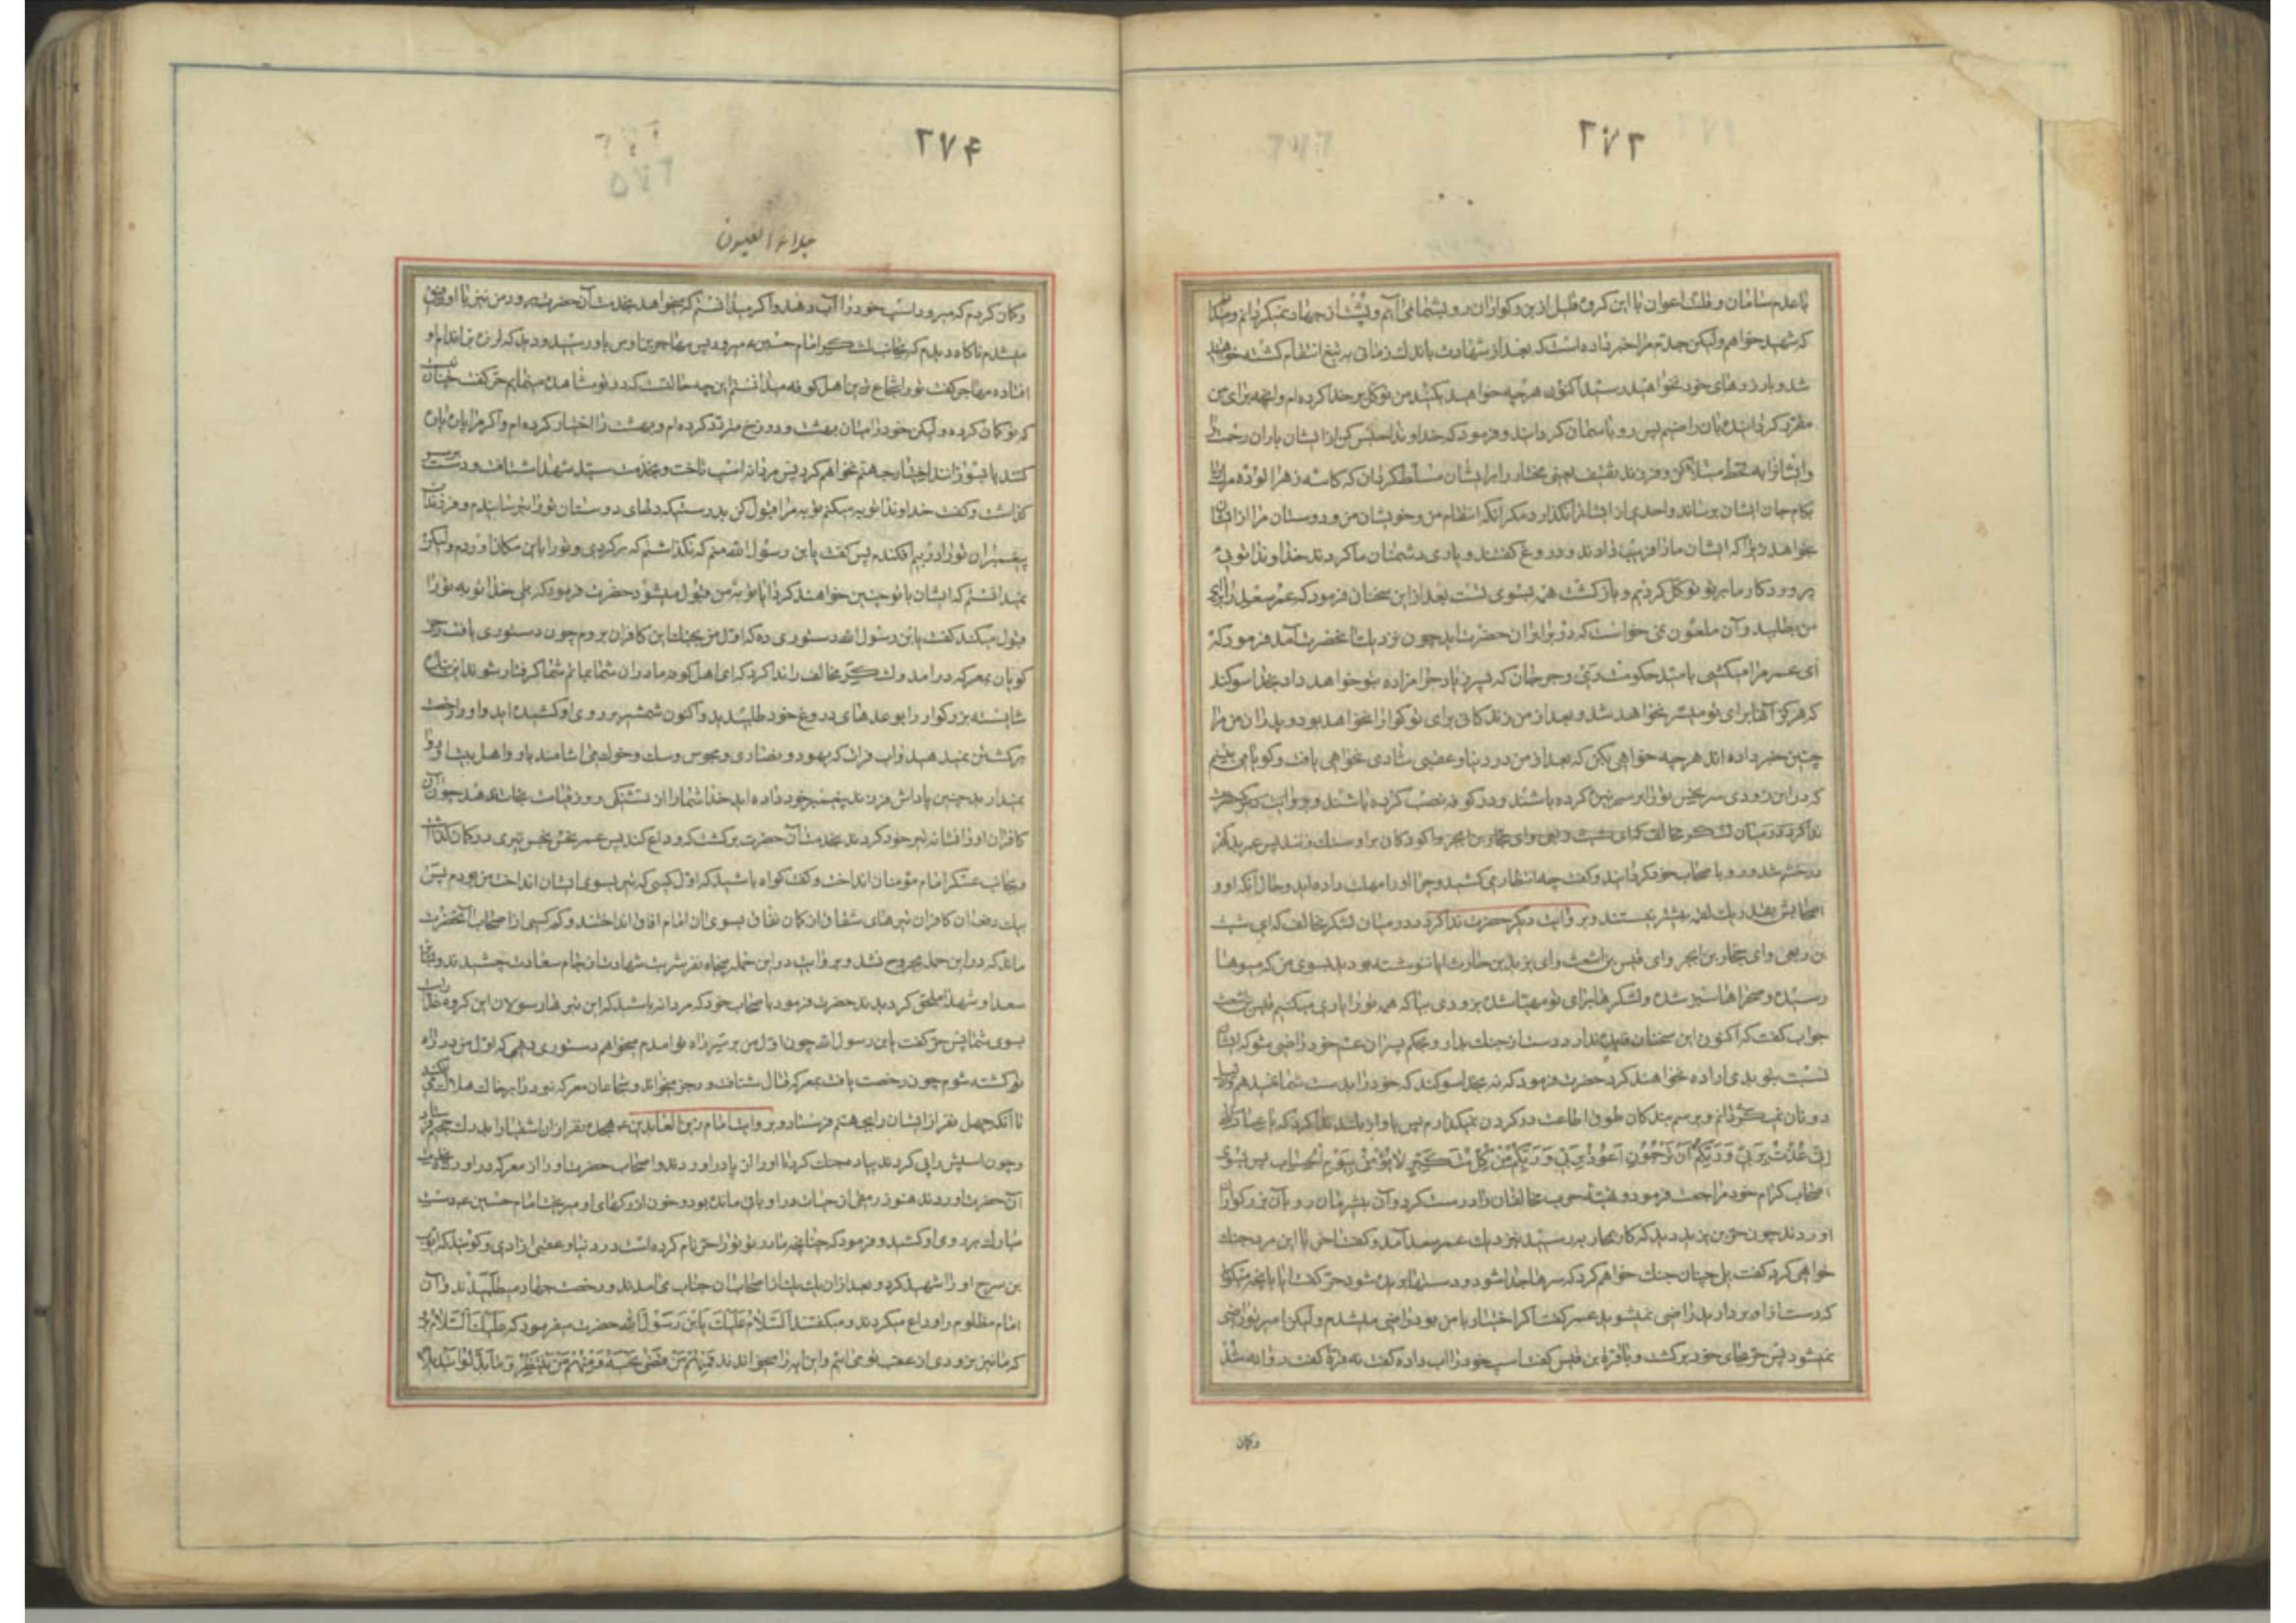 ۲۷۳
با عدم سامان و قلت اعوان با این کروه قلیل ازین وکواران رو بشما می آیم و پشت از جهاد نمیکردانم و میدانم
که شهید خواهم ولیکن جدم مرا خبر داده است که بعد از شهادت باندك زمانی به تیغ انتقام کشته خواهید
شد و بارزوهای خود نخواهید رسید اکنون هرچه خواهید بکنید من توکل بر خدا کرده ام و انچه برای من
مقرر کردانیده بان راضیم پس رو باسمان کردانید و فرمود که خداوندا حبس کن از ایشان باران رحمت را
و ایشانرا به قحط مبتلا کن و فرزند ثقیف یعنی مختار را بر ایشان مسلط کردان که کاسه زهرالوده مرك را
بکام جان ایشان برساند و احدی از ایشانرا نکذارد مکر آنکه انتقام من و خویشان من و دوستان مرا از ایشان
بخواهد زیرا که ایشان ما را فریب دادند و دروغ گفتند و یاری دشمنان ما کردند خداوندا توئی
پروردکار ما بر تو توکل کردیم و بازکشت همه بسوی تست بعد از این سخنان فرمود که عمر سعد را برای
من بطلبید و آن ملعون نمی خواست که در برابر ان حضرت اید چون نزدیك آنحضرت آمد فرمود که
ای عمر مرا میکشی بامید حکومت ری و جرجان که پسر زیاد حرامزاده بتو خواهد داد بخدا سوکند
که هرکز آنها برای تو میسر نخواهد شد و بعد از من زندکانی برای تو کوارا نخواهد بود و پدران من مرا
چنین خبر داده اند هرچه خواهی بکن که بعد از من در دنیا و عقبی شادی نخواهی یافت و کویا می بینم
که در این زودی سر نجس تو را بر سر نیزه کرده باشند و در کوفه نصب کرده باشند و کودکان بر او سنك زنند پس عمر بدکهر
در خشم شد و رو با صحاب خود کردانید و گفت چه انتظار می کشید و چرا او را مهلت داده اید و حال آنکه او و
اصحابش بقدر یك لقمه بیشتر نیستند و بروایت دیکر حضرت ندا کرد در میان لشکر مخالف که ای شبث
بن ربعی و ای حجار بن ابجر و ای قیس بن اشعث و ای یزید بن حارث ایا ننوشته بودید بسوی من که میوها
رسیده و صحراها سبز شده و لشکرها برای تو مهیا شده بزودی بیا که همه تو را یاری میکنیم قیس بن اشعث
جواب گفت که اکنون این سخنان فایده ندارد دست از جنك بدار و بحکم پسران عم خود راضی شو که ایشان
نسبت بتو بدی اراده نخواهند کرد حضرت فرمود که نه بخدا سوکند که خود را بدست شما نمیدهم
و برسم بندکان طوق اطاعت در کردن نمیکذارم پس باواز بلند ندا کرد که یا عباد الله
إنی عُذْتُ بِرَبّی وَ رَبِّکُمْ أَنْ تَرْجُمُونِ أعُوذُ بِرَبّی وَ رَبِّکُمْ مِنْ کُلِّ مُتَکَبِّرٍ لا یُؤْمِنُ بِیَوْمِ الْحِسابِ پس بسوی
اصحاب کرام خود مراجعت فرمود و تهیه حرب مخالفان را درست کرد و آن بیشرمان رو بآن بزرکوار
اوردند چون حر بن یزید دید که کار بمحاربه رسید بنزدیك عمر سعد آمد و گفت اخر با این مرد جنك
خواهی کرد گفت بلی چنان جنك خواهم کرد که سرها جدا شود و دستها بریده شود حر گفت ایا بانچه میکوید
که دست از او بردارید راضی نمیشوید عمر گفت اکر اختیار با من بود راضی میشدم ولیکن امیر تو راضی
نمیشود پس حر بجای خود برکشت و با قرة بن قیس گفت اسپ خود را اب داده گفت نه قرة گفت روانه شد
وکمان
۲۷۴
جلاء العیون
وکمان کردم که میرود اسپ خود را آب دهد و اکر میدانستم که میخواهد بخدمت آن حضرت برود من نیز با او رفیق
میشدم ناکاه دیدم که بجانب لشکر امام حسین ع میرود پس مهاجر بن اوس باو رسید و دید که لرزه بر اندام او
افتاده مهاجر گفت تو را شجاع ترین اهل کوفه میدانستم این چه حالتست که در تو مشاهده مینمایم حر گفت چنان نیست
که تو کمان کرده ولیکن خود را میان بهشت و دوزخ متردد کرده ام و بهشت را اختیار کرده ام و اکر مرا پاره پاره
کنند یا بسوزانند اختیار جهنم نخواهم کرد پس مردانه اسپ تاخت و بخدمت سید شهدا شتافت و دست بر سر
کذاشت و گفت خداوندا توبه میکنم توبه مرا قبول کن بدرستیکه دلهای دوستان تو را ترسانیدم و فرزندان
پیغمبران تو را در بیم افکندم پس گفت یابن رسول الله منم که نکذاشتم که برکردی و تو را باین مکان اوردم ولیکن
نمیدانستم که ایشان با تو چنین خواهند کرد ایا توبه من قبول میشود حضرت فرمود که بلی خدا توبه تو را
قبول میکند گفت یابن رسول الله دستوری ده که اول من بجنك این کافران بروم چون دستوری یافت رجز
کویان بمعرکه درامد و لشکر مخالف را ندا کرد که ای اهل کوفه مادران شما بماتم شما کرفتار شوند این بنده
شایسته بزرکوار را بوعدهای دروغ خود طلبیدید و اکنون شمشیر بر روی او کشیده اید و او را رخصت
برکشتن نمیدهید و اب فرات که یهود و نصاری و مجوس و سك و خوك می اشامند باو و اهل بیت او روا
نمیدارید چنین پاداش فرزند پیغمبر خود داده اید خدا شما را از تشنکی روز قیامت نجات ندهد چون آن
کافران او را نشانه تیر خود کردند بخدمت آن حضرت برکشت که وداع کند پس عمر نحس نجس تیری در کمان کذاشت
و بجانب عسکر امام مؤمنان انداخت و گفت کواه باشید که اول کسی که تیر بسوی ایشان انداخت من بودم پس
بیك دفعه ان کافران تیرهای شقاق از کمان نفاق بسوی ان امام افاق انداختند و کم کسی از اصحاب آنحضرت
ماند که در این حمله مجروح نشد و بروایت در این حمله پنجاه نفر شربت شهادت از جام سعادت چشیدند
سعدا و شهدا ملحق کردیدند حضرت فرمود با صحاب خود که مردانه باشید که این تیرها رسولان این کروه غدارند
بسوی شما پس حر گفت یابن رسول الله چون اول من بر سر راه تو امدم میخواهم دستوری دهی که اول من در راه
تو کشته شوم چون رخصت یافت بمعرکه قتال شتافت و رجز میخواند و شجاعان معرکه نبرد را بر خاك هلاك می افکند
تا آنکه چهل نفر از ایشان را بجهنم فرستاد و بروایت امام زین العابدین ع هیجده نفر از ان اشقیا را بدرك جحیم فرستاد
و چون اسبش را پی کردند پیاده جنك کرد تا او را از پا دراوردند و اصحاب حضرت او را از معرکه دراوردند بخدمت
آن حضرت اوردند هنوز رمقی از حیات در او باقی مانده بود و خون از رکهای او میریخت امام حسین ع دست
مبارك بر روی او کشید و فرمود که چنانچه مادر تو تو را حر نام کرده است در دنیا و عقبی ازادی و کویند که ایوب
بن سرح او را شهید کرد و بعد از ان یك یك از اصحاب ان جناب می امدند و رخصت جهاد میطلبیدند و آن
امام مظلوم را وداع میکردند و میکفتند اَلسَّلامُ عَلَیْكَ یَابْنَ رَسُولِ اللهِ حضرت میفرمود که عَلَیْكَ السَّلامُ برو
که ما نیز بزودی از عقب تو می ائیم و این ایه را میخواندند فَمِنْهُمْ مَنْ قَضیٰ نَحْبَهُ وَ مِنْهُمْ مَنْ یَنْتَظِرُ وَ ما بَدَّلُوا تَبْدیلاً